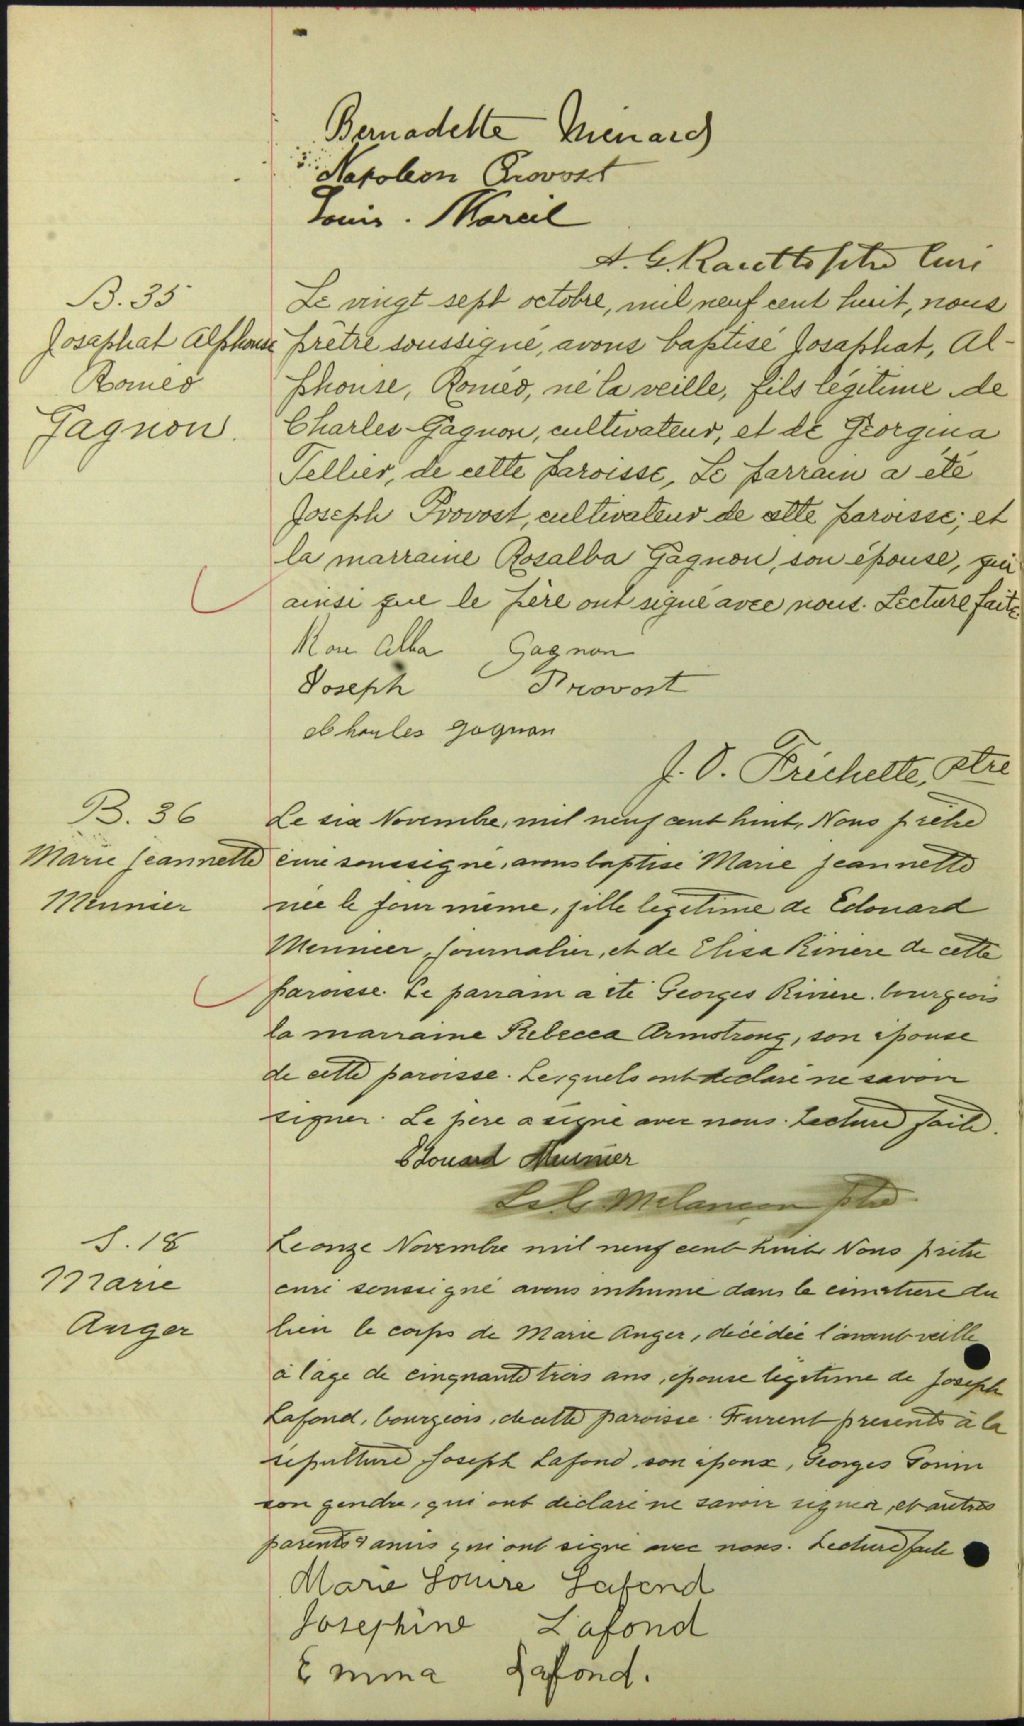 Bernadette Ménard
Napoléon Provost
Louis. Mareil
A. G. Racette ptre Curé
B. 35
Josaphat Alphonse
Roméo
Gagnon.
Le vingt sept octobre, mil neuf cent huit, nous
prêtre soussigné, avons baptisé Josaphat, Al-
phonse, Roméo, né la veille, fils légitime de
Charles Gagnon, cultivateur, et de Georgina
Tellier, de cette paroisse, Le parrain a été
Joseph Provost, cultivateur de cette paroisse; et
la marraine Rosalba Gagnon, son épouse, qui
ainsi que le père ont signé avec nous. Lecture faite.
Rose Alba Gagnon
Joseph Provost
Charles Gagnon
J. O. Fréchette, ptre
B. 36
Marie Jeannette
Meunier
Le six Novembre, mil neuf cent huit, Nous prêtre
curé soussigné, avons baptisé Marie Jeannette
née le jour même, fille légitime de Edouard
Meunier, journalier, et de Elisa Rivière de cette
paroisse. Le parrain a été Georges Rivière. bourgeois
la marraine Rebecca Armstrong, son épouse
de cette paroisse. Lesquels ont declaré ne savoir
signer. Le père a signé avec nous. Lecture faite.
Edouard Meunier
Ls. G. Melançon ptre
S. 18
Marie
Anger
Le onze Novembre mil neuf cent huit Nous prêtre
curé soussigné avons inhumé dans le cimetière du
lieu le corps de Marie Anger, décédée l'avant veille
à l'âge de cinquante trois ans, épouse légitime de Joseph
Lafond, bourgeois, de cette paroisse. Furent presents à la
sépulture Joseph Lafond, son époux, Georges
son gendre, qui ont déclaré ne savoir signer, et autres
parents & amis qui ont signé avec nous. Lecture faite
Marie Louise Lafond
Josephine Lafond
Emma Lafond.